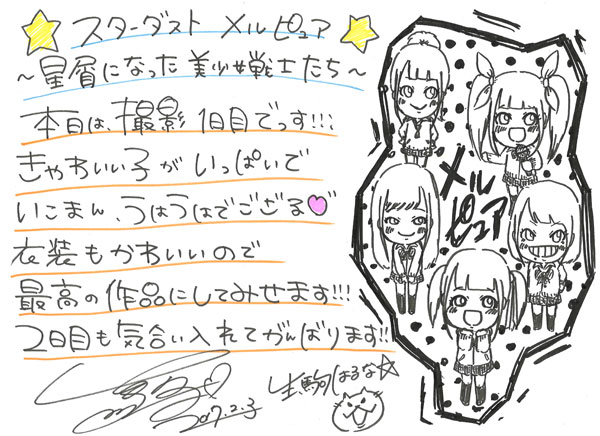 スターダスト メルピュア
～星屑になった美少女戦士たち～
本日は、撮影1日目でっす!!!
きゃわいい子がいっぱいで
いこまん、うはうはでござる♡
衣装もかわいいので
最高の作品にしてみせます!!!
2日目も気合い入れてがんばります!!
2017.2.3
生駒はるな☆
メル
ピュア